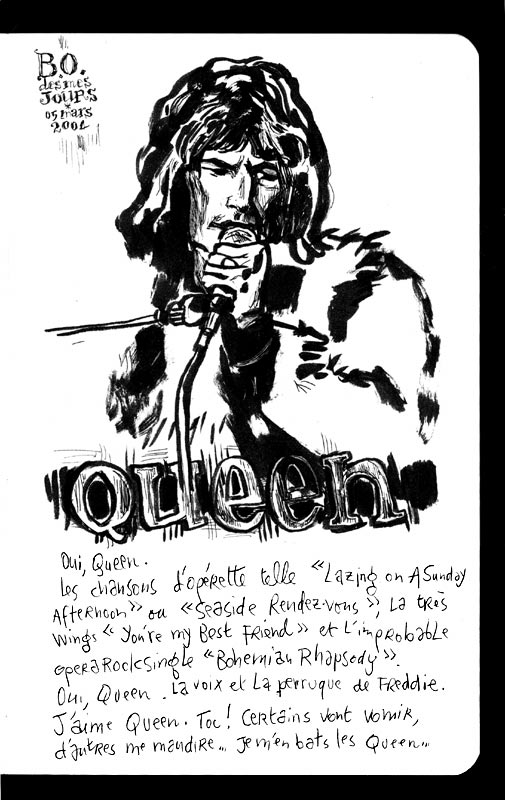 B.O.
des mes
Jours
05 mars
2001
Queen
Oui, Queen.
Les chansons d'opérette telle "Lazing on A Sunday
Afternoon" ou "Seaside Rendez-vous", La très
Wings "You're my Best Friend" et L'improbable
opéra Rock single "Bohemian Rhapsody".
Oui, Queen. La voix et La perruque de Freddie.
J'aime Queen. Toc! Certains vont vomir,
d'autres me maudire... Je m'en bats les Queen...